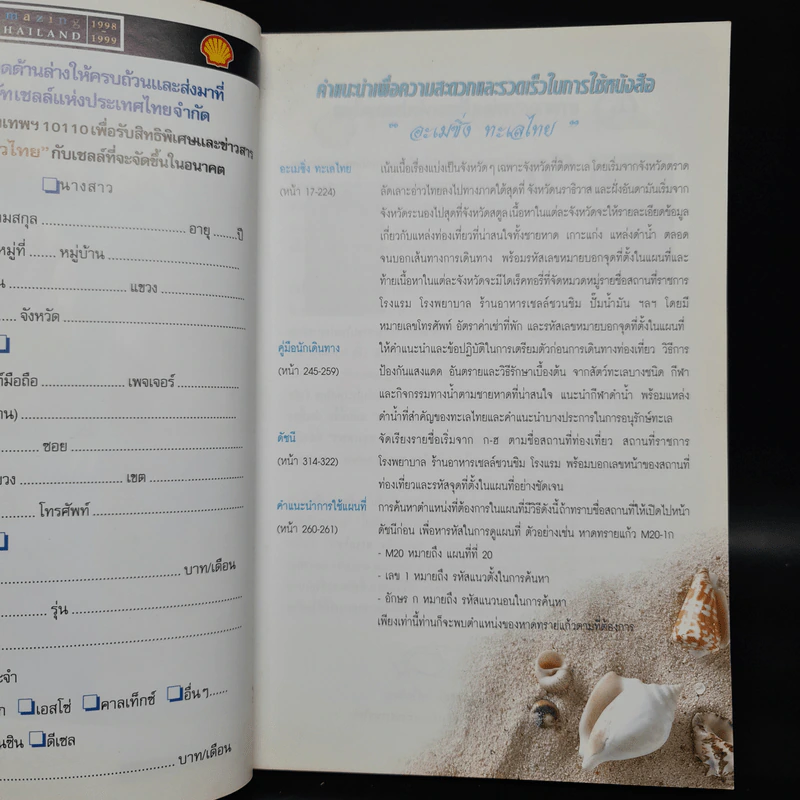 mazing 1998
THAILAND 1999
ดด้านล่างให้ครบถ้วนและส่งมาที่
ัทเชลล์แห่งประเทศไทยจำกัด
เทพฯ 10110 เพื่อรับสิทธิพิเศษและข่าวสาร
ไทย" กับเชลล์ที่จะจัดขึ้นในอนาคต
นางสาว
ามสกุล อายุ ปี
หมู่ที่ หมู่บ้าน
แขวง
จังหวัด
ท์มือถือ เพจเจอร์
าน)
ซอย
วง เขต
โทรศัพท์
บาท/เดือน
รุ่น
ะจำ
ก เอสโซ่ คาลเท็กซ์ อื่นๆ
นซิน ดีเซล
บาท/เดือน
คำแนะนำเพื่อความสะดวกและรวดเร็วในการใช้หนังสือ
" อะเมซิ่ง ทะเลไทย "
อะเมซิ่ง ทะเลไทย
(หน้า 17-224)
เน้นเนื้อเรื่องแบ่งเป็นจังหวัดๆ เฉพาะจังหวัดที่ติดทะเล โดยเริ่มจากจังหวัดตราด
ลัดเลาะอ่าวไทยลงไปทางภาคใต้สุดที่ จังหวัดนราธิวาส และฝั่งอันดามันเริ่มจาก
จังหวัดระนองไปสุดที่จังหวัดสตูล เนื้อหาในแต่ละจังหวัดจะให้รายละเอียดข้อมูล
เกี่ยวกับแหล่งท่องเที่ยวที่น่าสนใจทั้งชายหาด เกาะแก่ง แหล่งดำน้ำ ตลอด
จนบอกเส้นทางการเดินทาง พร้อมรหัสเลขหมายบอกจุดที่ตั้งในแผนที่และ
ท้ายเนื้อหาในแต่ละจังหวัดจะมีไดเร็คทอรี่ที่จัดหมวดหมู่รายชื่อสถานที่ราชการ
โรงแรม โรงพยาบาล ร้านอาหารเชลล์ชวนชิม ปั๊มน้ำมัน ฯลฯ โดยมี
หมายเลขโทรศัพท์ อัตราค่าเช่าที่พัก และรหัสเลขหมายบอกจุดที่ตั้งในแผนที่
คู่มือนักเดินทาง
(หน้า 245-259)
ให้คำแนะนำและข้อปฏิบัติในการเตรียมตัวก่อนการเดินทางท่องเที่ยว วิธีการ
ป้องกันแสงแดด อันตรายและวิธีรักษาเบื้องต้น จากสัตว์ทะเลบางชนิด กีฬา
และกิจกรรมทางน้ำตามชายหาดที่น่าสนใจ แนะนำกีฬาดำน้ำ พร้อมแหล่ง
ดำน้ำที่สำคัญของทะเลไทยและคำแนะนำบางประการในการอนุรักษ์ทะเล
ดัชนี
(หน้า 314-322)
จัดเรียงรายชื่อเริ่มจาก ก-ฮ ตามชื่อสถานที่ท่องเที่ยว สถานที่ราชการ
โรงพยาบาล ร้านอาหารเชลล์ชวนชิม โรงแรม พร้อมบอกเลขหน้าของสถานที่
ท่องเที่ยวและรหัสจุดที่ตั้งในแผนที่อย่างชัดเจน
คำแนะนำการใช้แผนที่
(หน้า 260-261)
การค้นหาตำแหน่งที่ต้องการในแผนที่มีวิธีดังนี้ถ้าทราบชื่อสถานที่ให้เปิดไปหน้า
ดัชนีก่อน เพื่อหารหัสในการดูแผนที่ ตัวอย่างเช่น หาดทรายแก้ว M20-1ก
- M20 หมายถึง แผนที่ที่ 20
- เลข 1 หมายถึง รหัสแนวตั้งในการค้นหา
- อักษร ก หมายถึง รหัสแนวนอนในการค้นหา
เพียงเท่านี้ท่านก็จะพบตำแหน่งของหาดทรายแก้วตามที่ต้องการ